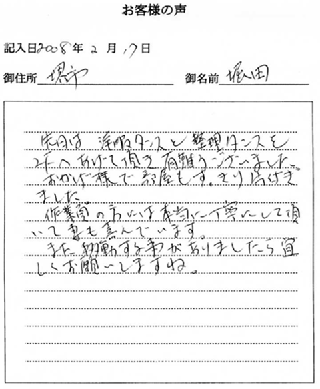 お客様の声
記入日2008年2月17日
御住所 堺市 御名前 堀田
先日は 洋服タンスと整理タンスを
2Fへあげて頂き有難うございました。
おかげ様で部屋もすっきり片げき
ました。
作業員の方には本当に丁寧にして頂
いて妻も喜んでいます。
また移動する事がありましたら宜
しくお願いしますね。